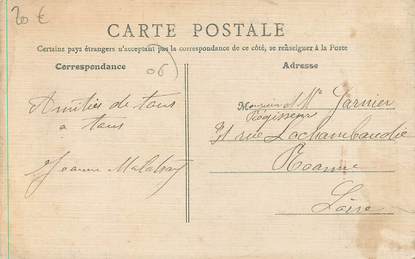 20 €
CARTE POSTALE
Certains pays étrangers n'acceptant pas la correspondance de ce côté, se renseigner à la Poste
Correspondance
(06)
Adresse
Amitiés de tous
a tous
Jeanne
Monsieur et Mme Garnier
Régisseur
rue Lachambaudie
Roanne
Loire